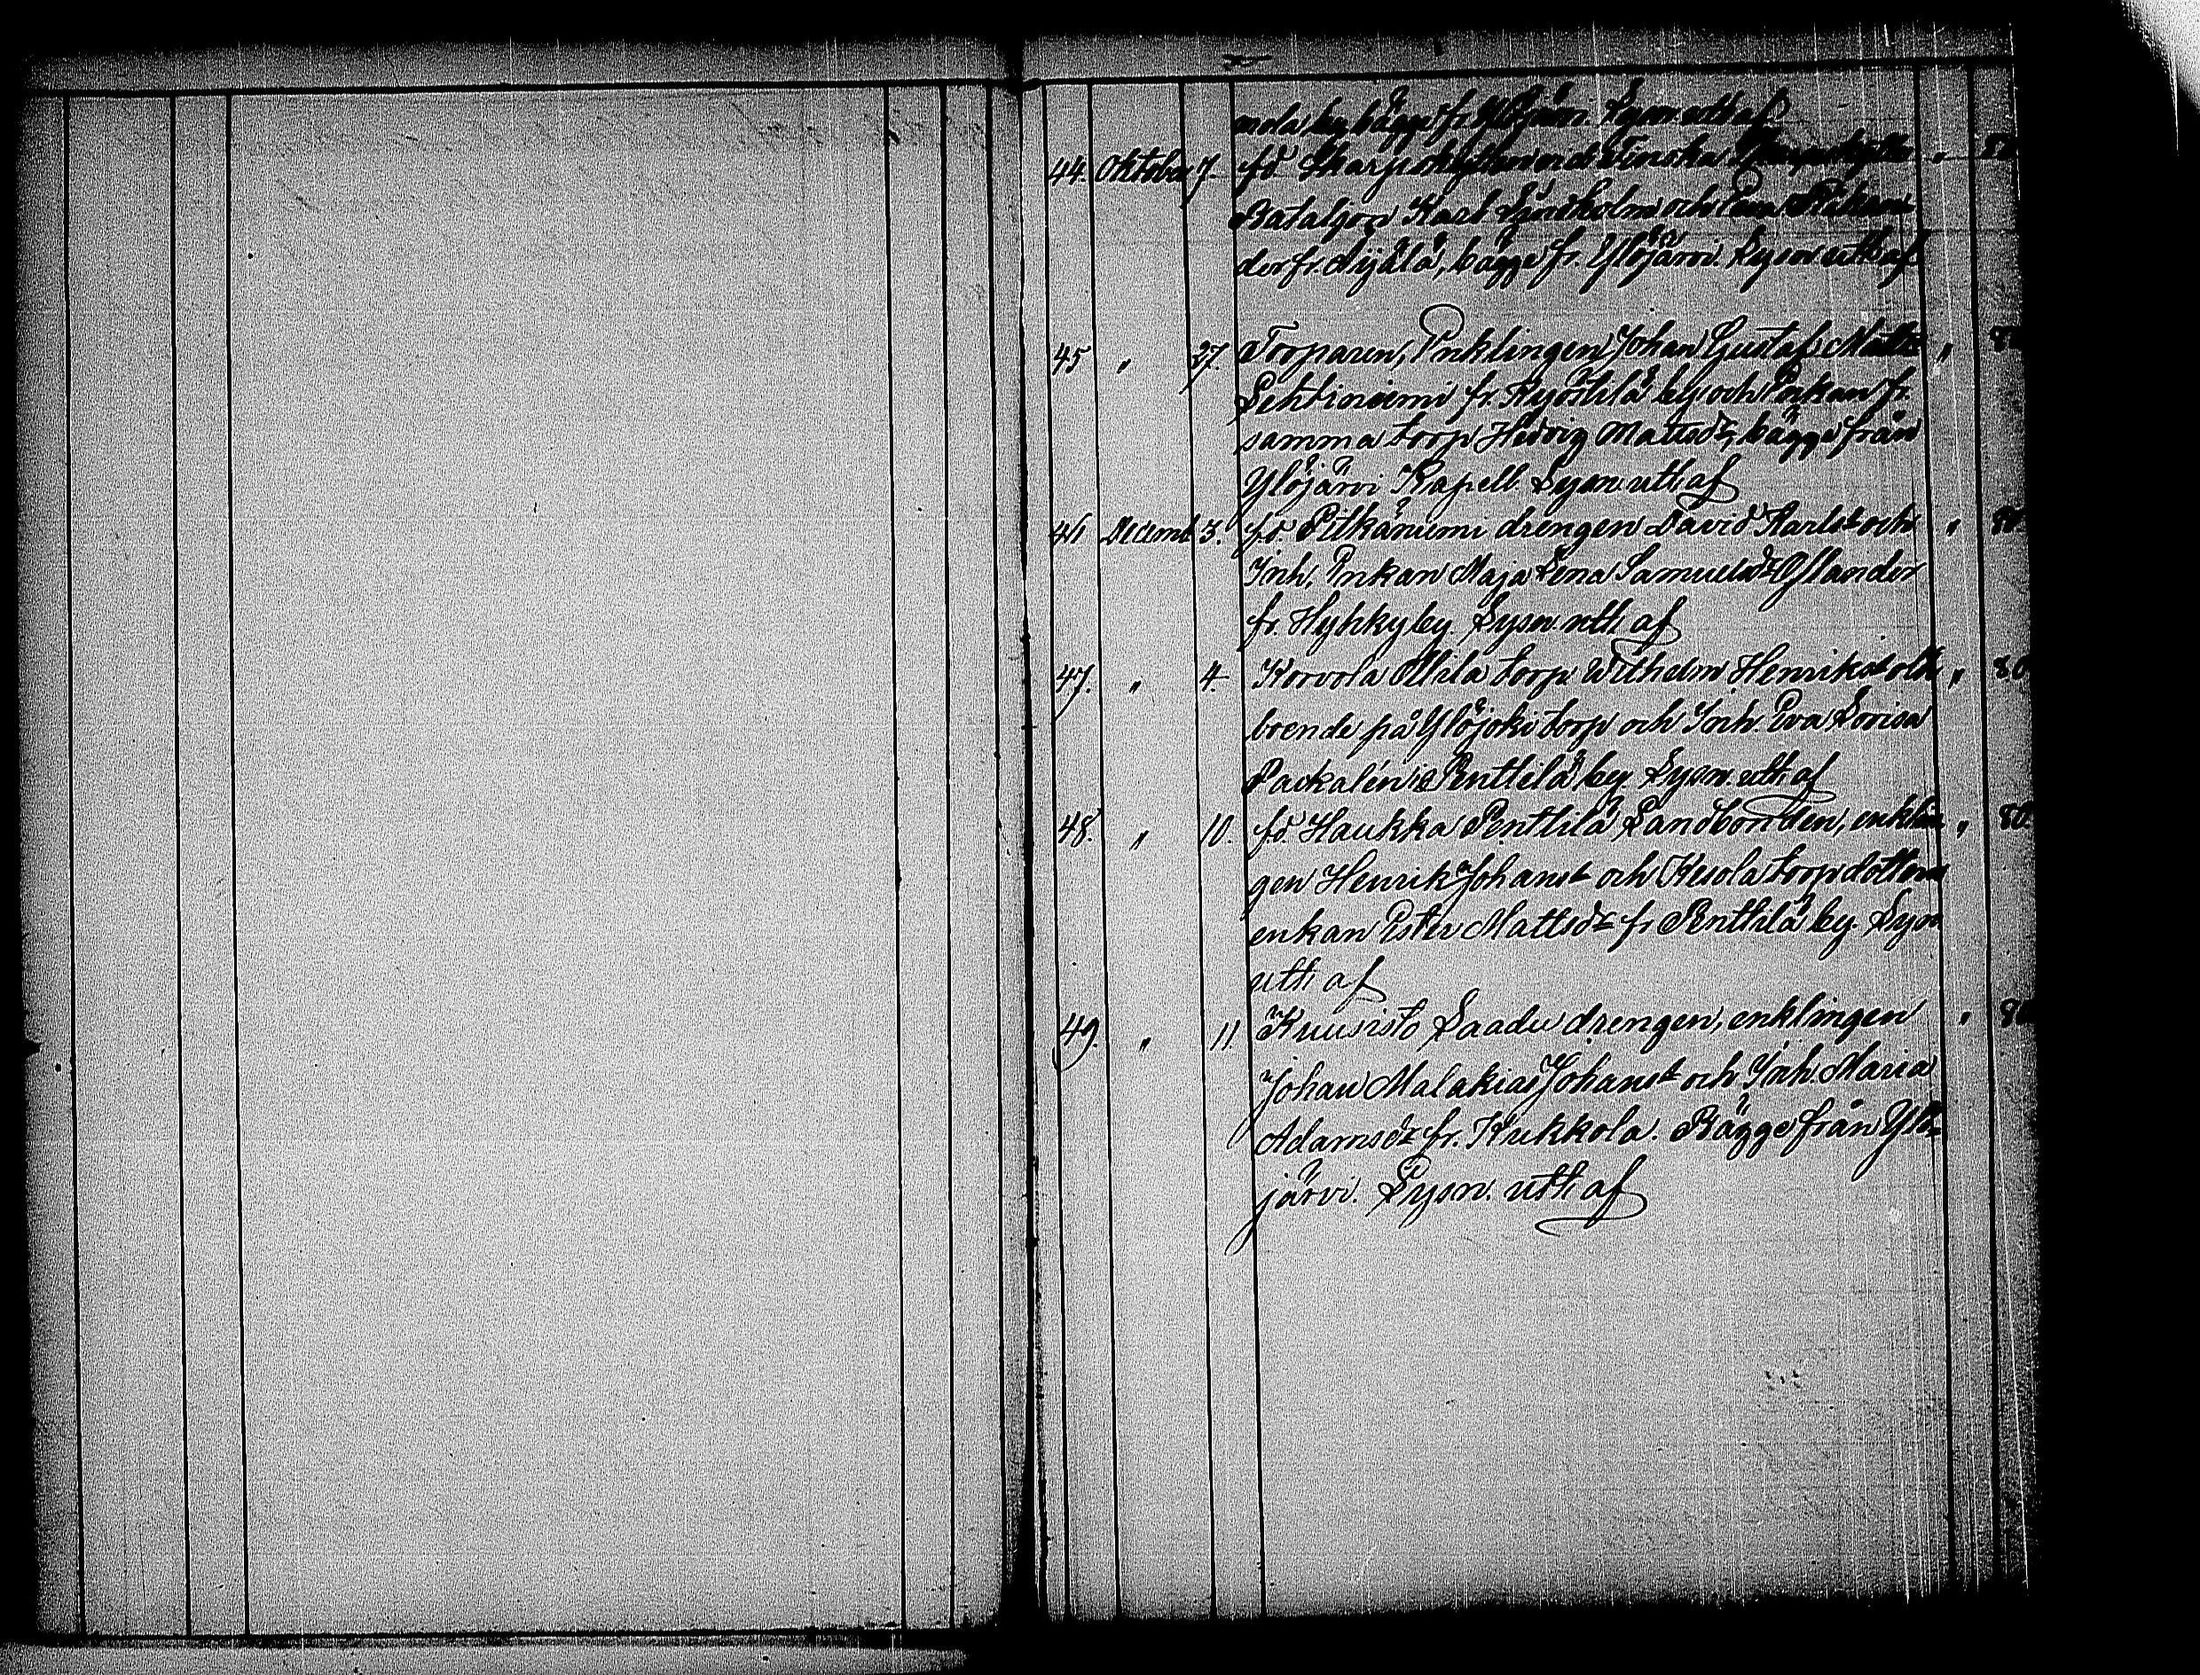 by bägge fr. Ylöjärvi. Lysn. utt. af
44. Oktober 7. fd. Skarpskytten vid Finska " 80
Bataljon Karl och
der fr. Mijälä, bägge fr. Ylöjärvi. Lysn. utt. af
45 " 27. Torparen, Enklingen Johan Gustaf Matts " 80
Lehtiniemi fr. Kyöstilä by och Enkan fr.
samma torp Hedvig Mattsdr, bägge från
Ylöjärvi Kapell. Lysn. utt. af
46 Decemb. 3. fd. Pitkäniemi drengen David Karlss. och " 80
Inh. Enkan Maja Lena Samuelsdr Öslander
fr. Hyhky by. Lysn. utt. af
47. " 4. Korvola Ollila torp. Wilhelm Henrikss. " 80
boende på Ylöjoki torp och Inh. Eva Lovisa
Packalén i Penttilä by. Lysn. utt. af
48. " 10. fd. Haukka Penttilä Landbonden, enklin " 80.
gen Henrik Johanss. och Kesola torp.dottern
enkan Ester Mattsdr fr. Penttilä by. Lysn
utt. af
49. " 11. Kuusisto Laadu drengen, enklingen " 80
Johan Malakias Johanss. och Inh. Maria
Adamsdr fr. Kukkola. Bägge från Ylö-
järvi. Lysn. utt. af